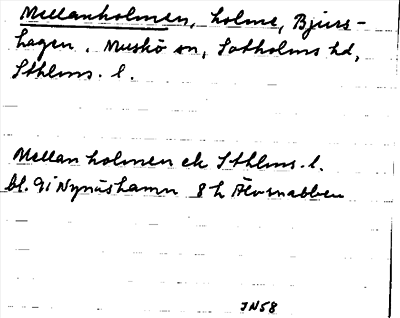 Mellanholmen, holme, Bjurs-
hagen. Muskö sn, Sotholms hd,
Sthlms. l.
Mellanholmen ek Sthlms. l.
bl. 9i Nynäshamn 8h Älvsnabben
JN58